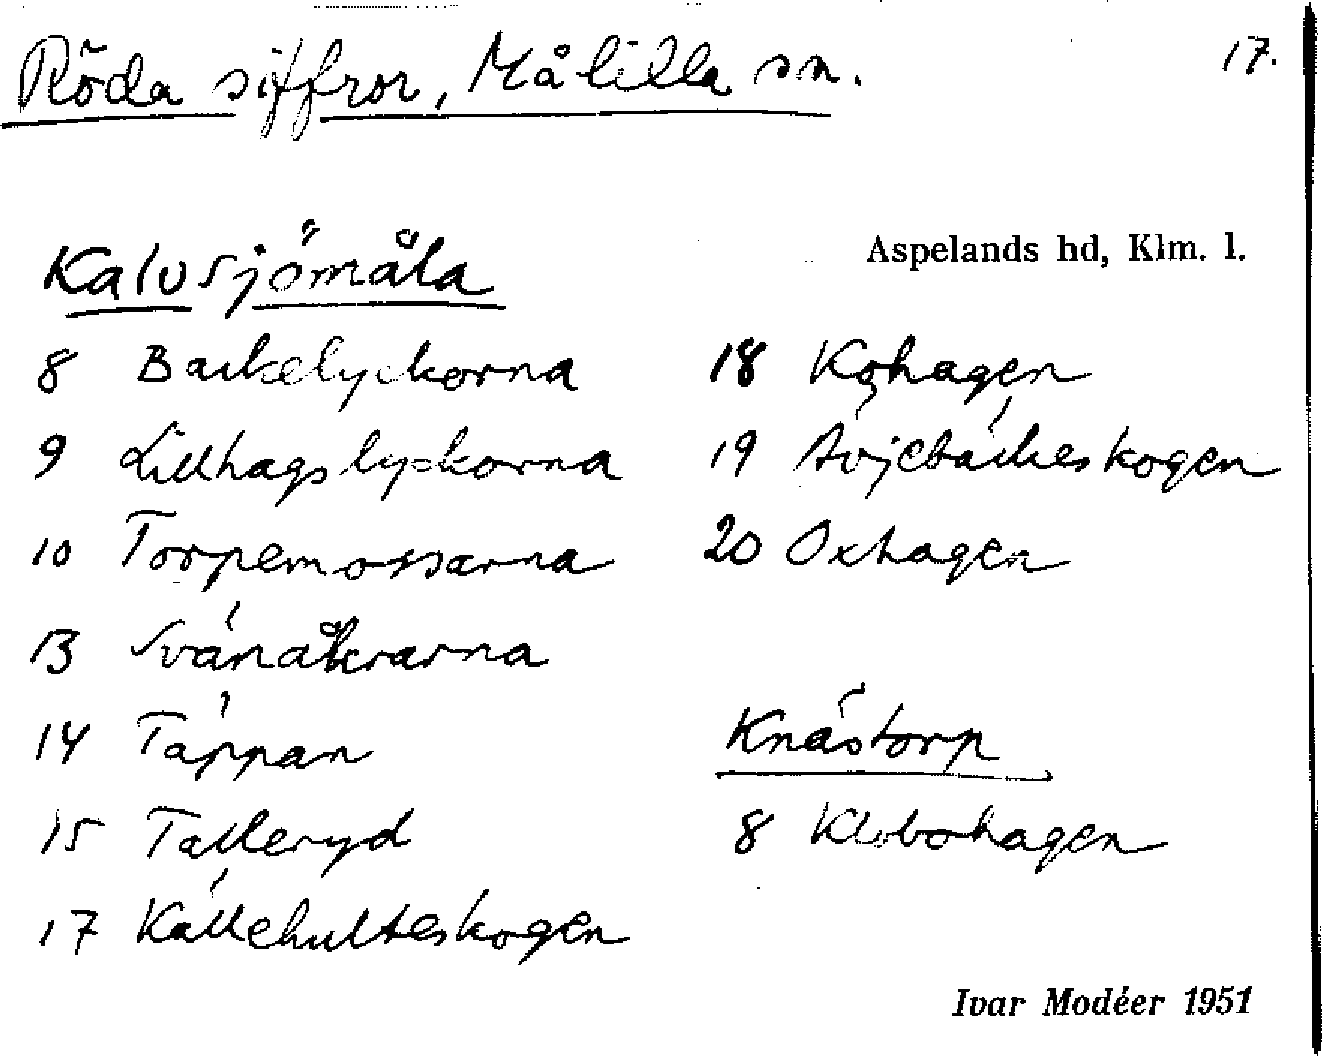 Röda siffror, Målilla sn.
17.
Kalvsjömåla
Aspelands hd, Klm. l.
8 Backelyckorna
9 Lillhagslyckorna
10 Torpemossarna
13 Svänåkrarna
14 Täppan
15 Talleryd
17 Källehulteskogen
18 Kohagen
19
20 Oxhagen
Knästorp
8 Klobohagen
Ivar Modéer 1951